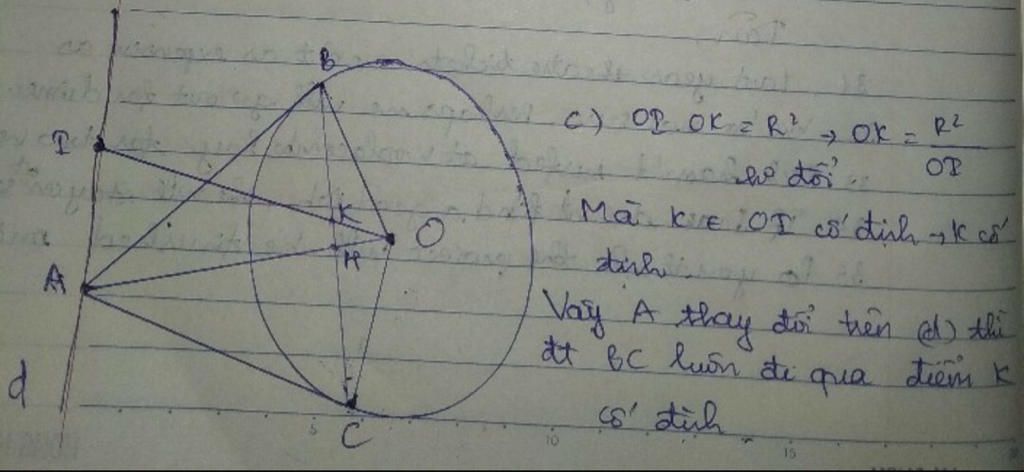 B
I
K
O
H
A
d
C
5
10
15
c) OI. OK = R² → OK = R²/OI
ko đổi
Mà K ∈ OI cố định → K cố
định
Vậy A thay đổi trên (d) thì
đt BC luôn đi qua điểm K
cố định